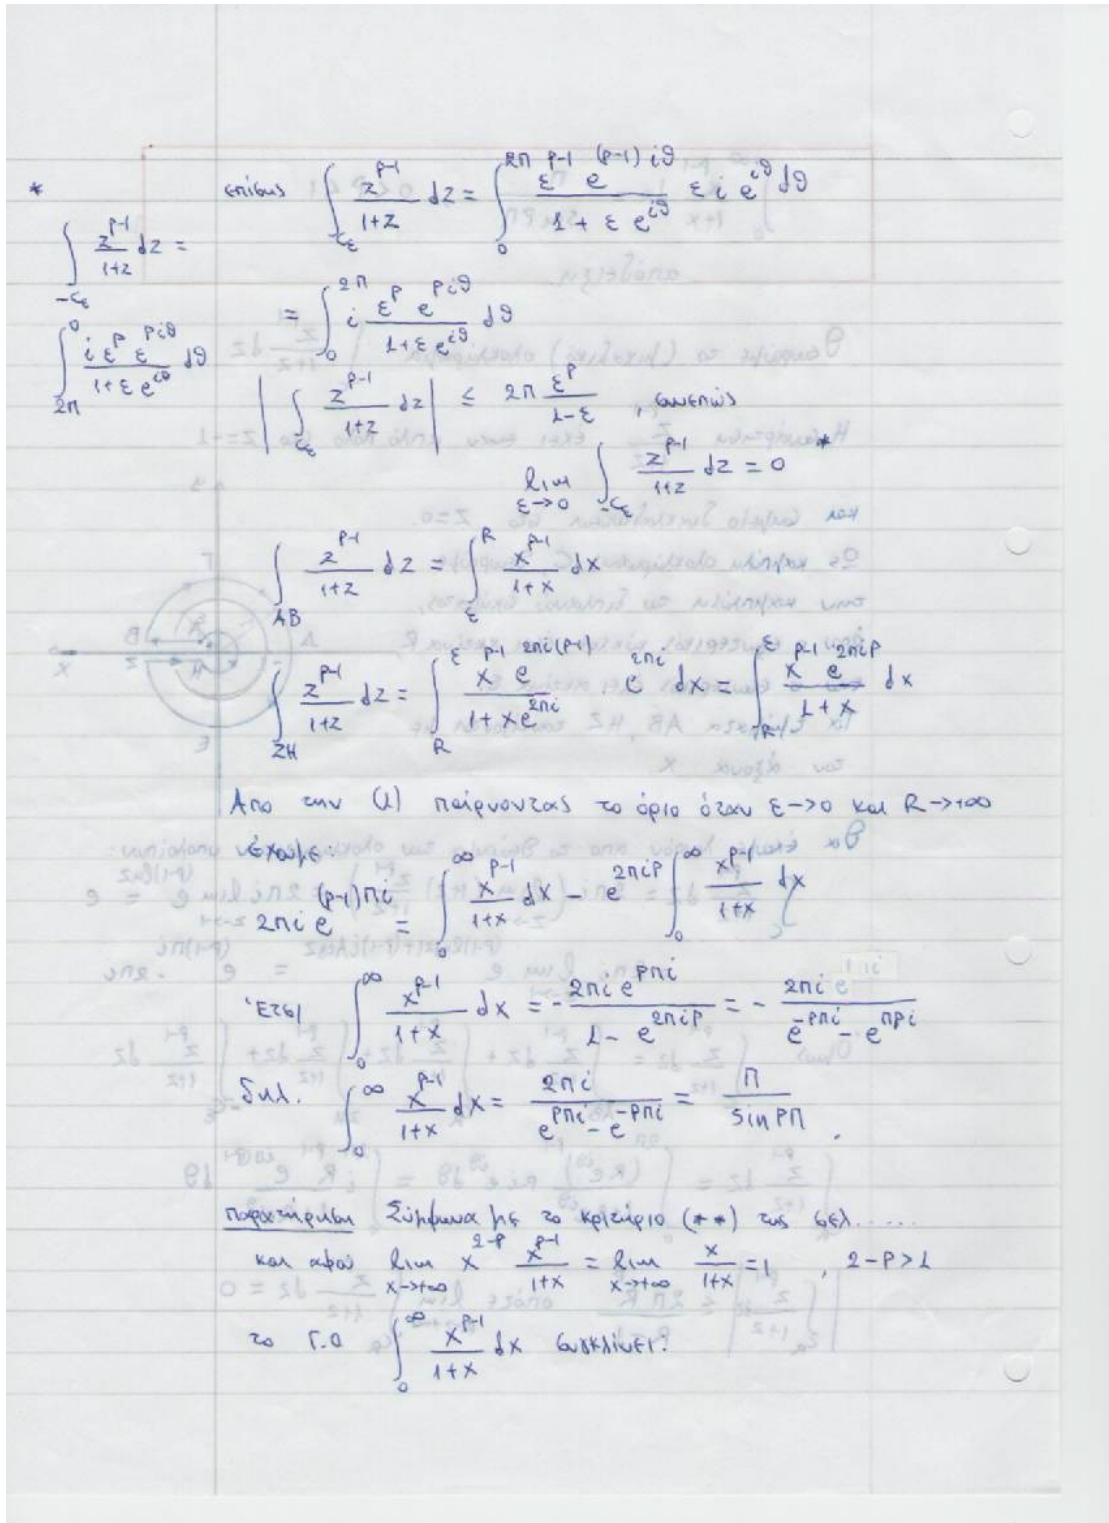 * επίσης ∫_{-C_ε} z^{p-1}/(1+z) dz = ∫_0^{2π} ε^{p-1} e^{(p-1)iθ}/(1+ε e^{iθ}) ε i e^{iθ} dθ
∫_{-C_ε} z^{p-1}/(1+z) dz =
∫_{2π}^0 i ε^p ε^{piθ}/(1+ε e^{iθ}) dθ
= ∫_0^{2π} i ε^p e^{piθ}/(1+ε e^{iθ}) dθ
|∫_{C_ε} z^{p-1}/(1+z) dz| ≤ 2π ε^p/(1-ε) , συνεπώς
lim_{ε→0} ∫_{-C_ε} z^{p-1}/(1+z) dz = 0 *
∫_{AB} z^{p-1}/(1+z) dz = ∫_ε^R x^{p-1}/(1+x) dx
∫_{ZH} z^{p-1}/(1+z) dz = ∫_R^ε x^{p-1} e^{2πi(p-1)}/(1+xe^{2πi}) e^{2πi} dx = ∫_R^ε x^{p-1} e^{2πip}/(1+x) dx
Απο την (1) παίρνοντας το όριο όταν ε→0 και R→+∞
έχουμε:
2πi e^{(p-1)πi} = ∫_0^∞ x^{p-1}/(1+x) dx - e^{2πip} ∫_0^∞ x^{p-1}/(1+x) dx
Έτσι ∫_0^∞ x^{p-1}/(1+x) dx = - 2πi e^{pπi}/(1-e^{2πip}) = - 2πi/(e^{-pπi}-e^{πpi})
δηλ. ∫_0^∞ x^{p-1}/(1+x) dx = 2πi/(e^{pπi}-e^{-pπi}) = π/sin pπ .
παρατήρηση Σύμφωνα με το κριτήριο (**) της σελ......
και αφού lim_{x→+∞} x^{2-p} x^{p-1}/(1+x) = lim_{x→+∞} x/(1+x) = 1 , 2-p>1
το Γ.Ο ∫_0^∞ x^{p-1}/(1+x) dx συγκλίνει.